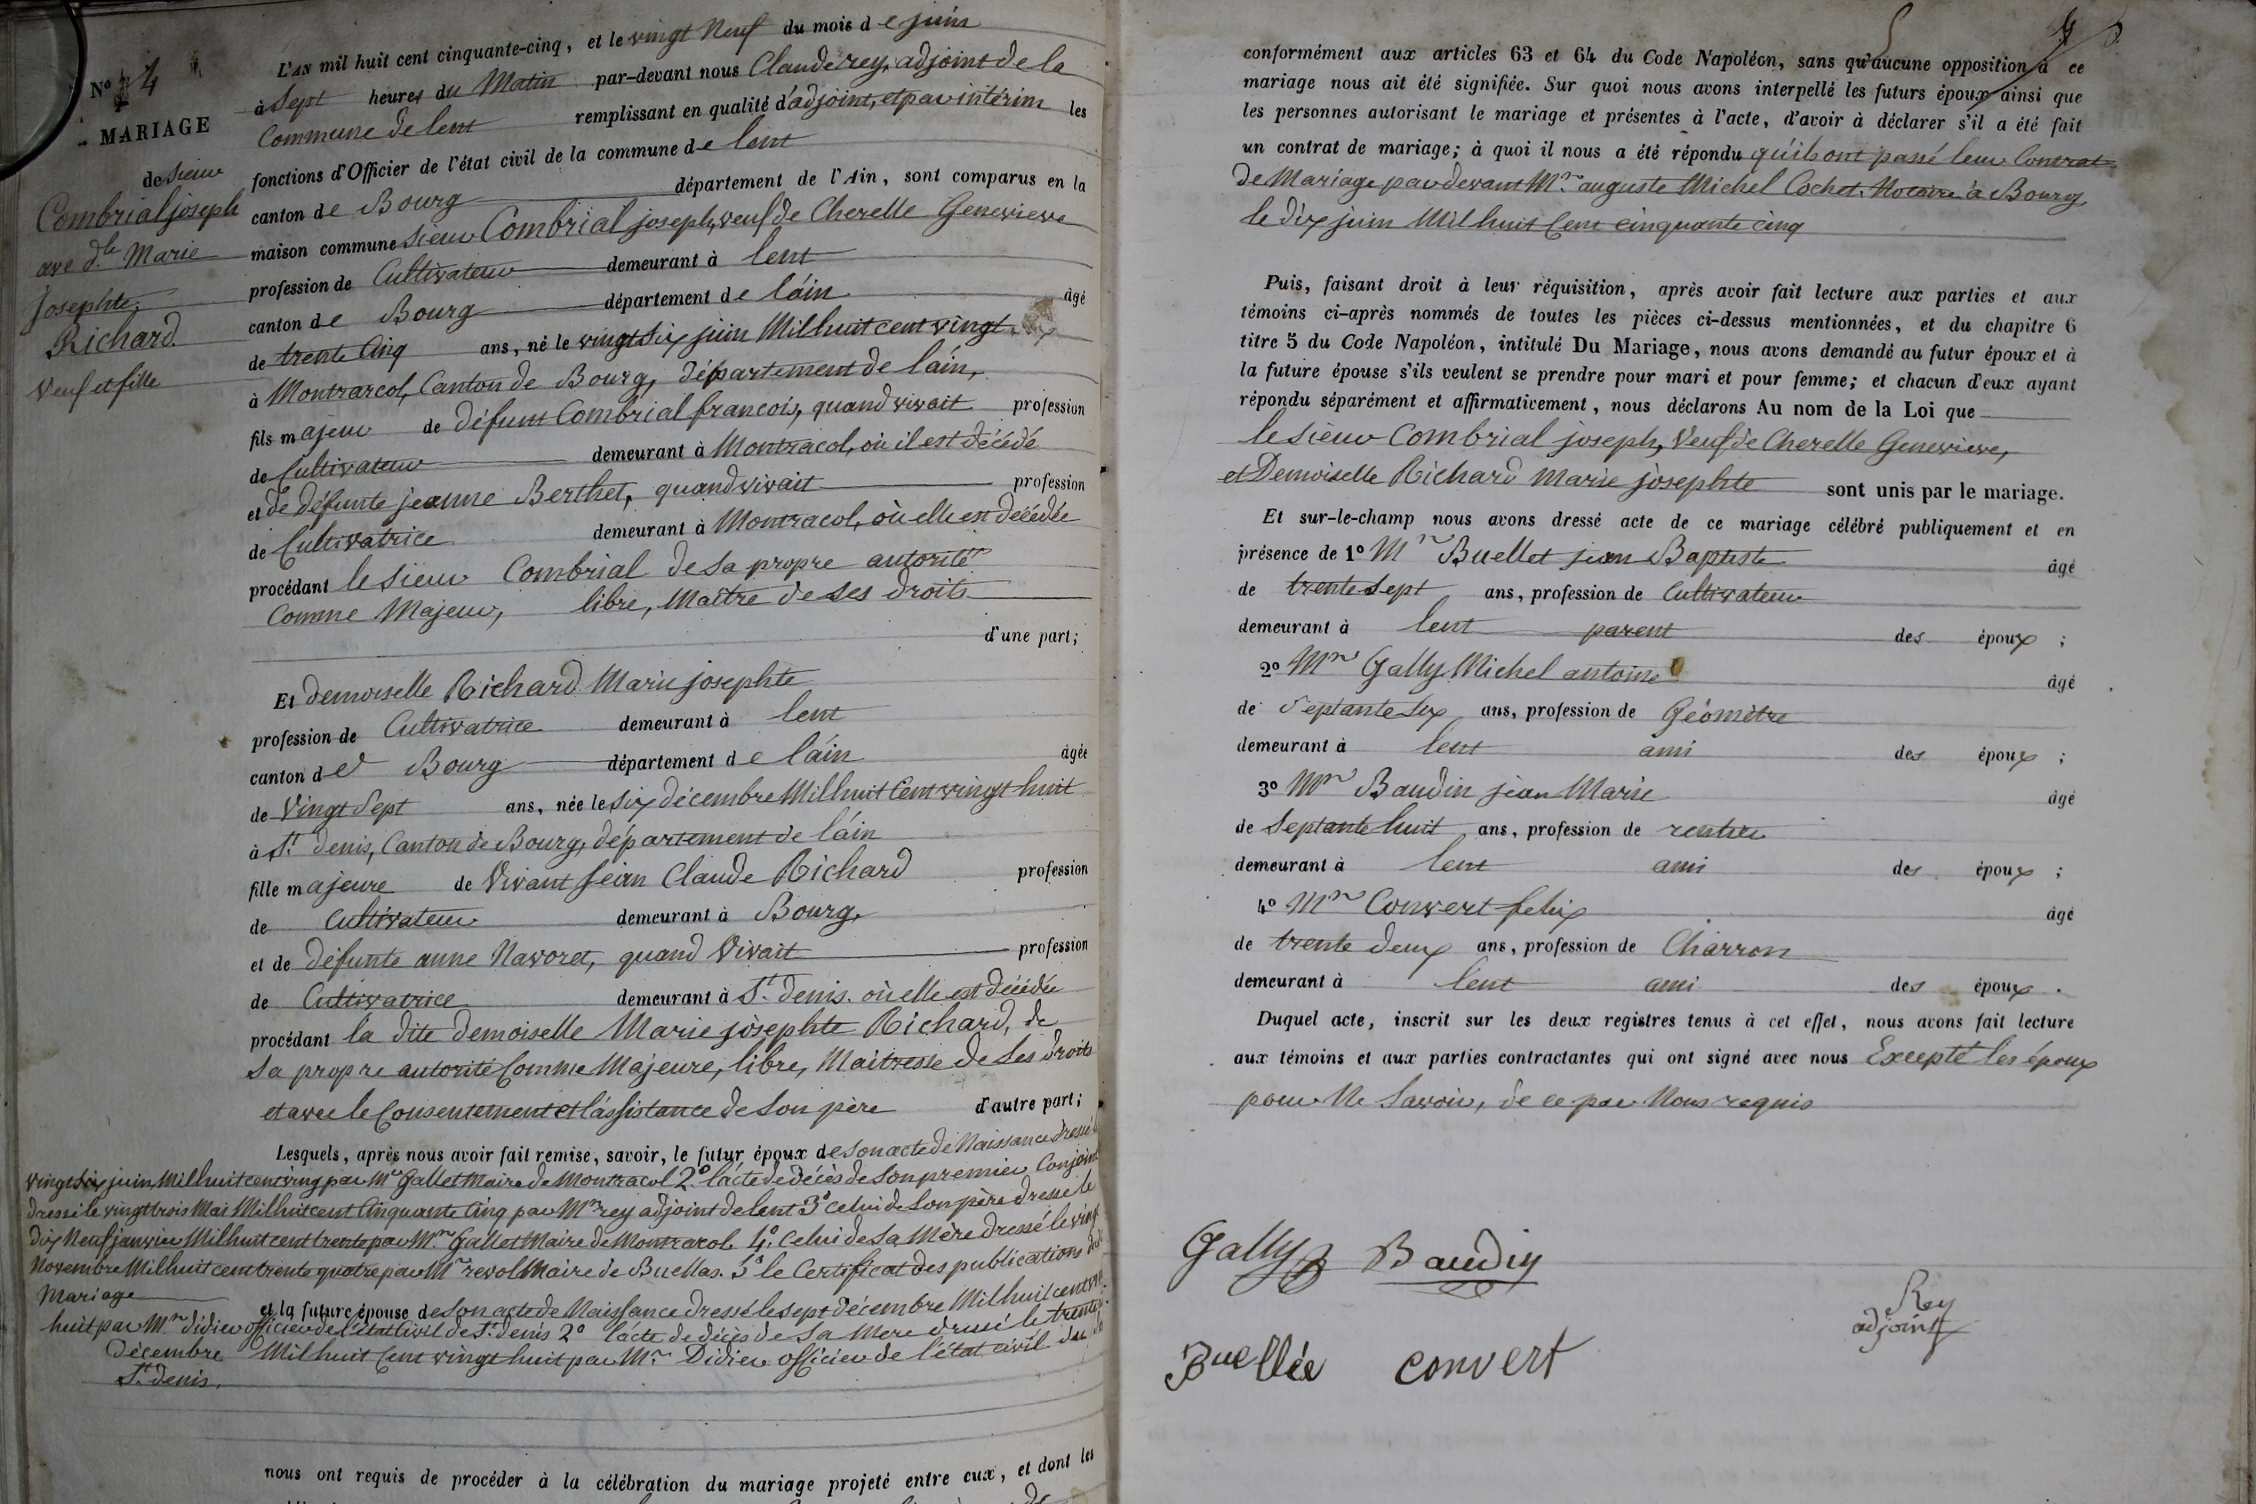 L'AN mil huit cent cinquante-cinq, et le vingt Neuf du mois de juin
N° 4
à Sept heures du Matin par-devant nous Claude rey, adjoint de la
MARIAGE
Commune de lent remplissant en qualité d'adjoint, et par intérim les
de sieur
Combrial joseph
ave dlle Marie
Josephte
Richard
Veuf et fille
fonctions d'Officier de l'état civil de la commune de lent
canton de Bourg département de l'Ain, sont comparus en la
maison commune sieur Combrial joseph, veuf de Cherelle Genevieve
profession de Cultivateur demeurant à lent
canton de Bourg département de l'áin âgé
de trente Cinq ans, né le vingt six juin Mil huit cent vingt
à Montrarcol, Canton de Bourg, département de l'áin,
fils majeur de défunt Combrial francois, quand vivait profession
de Cultivateur demeurant à Montracol, où il est décédé
et de défunte jeanne Berthet, quand vivait profession
de Cultivatrice demeurant à Montracol, où elle est décédée
procédant le sieur Combrial de sa propre autorité
Comme Majeur, libre, Maître de ses droits
d'une part;
Et demoiselle Richard Marie josephte
profession de Cultivatrice demeurant à lent
canton de Bourg département de l'áin âgée
de Vingt Sept ans, née le six décembre Mil huit Cent vingt huit
à St denis, Canton de Bourg, département de l'áin
fille majeure de Vivant Jean Claude Richard profession
de Cultivateur demeurant à Bourg,
et de défunte anne Navoret, quand Vivait profession
de Cultivatrice demeurant à St denis. où elle est décédée
procédant la dite demoiselle Marie josephte Richard, de
Sa propre autorité Comme Majeure, libre, Maîtresse de Ses droits
et avec le Consentement et l'assistance de Son père d'autre part;
Lesquels, après nous avoir fait remise, savoir, le futur époux de son acte de Naissance dressé
vingt six juin, Mil huit cent vingt par Mr Gallet Maire de Montracol 2° l'acte de décès de Son premier Conjoint
dressé le vingt trois Mai Mil huit cent Cinquante Cinq par Mr rey adjoint de lent 3° celui de Son père dressé le
dix Neuf janvier Mil huit cent trente par Mr Gallet Maire de Montracol 4° celui de Sa Mère dressé le vingt
Novembre Mil huit cent trente quatre par Mr revol Maire de Buellas. 5° le Certificat des publications de
Mariage
et la future épouse de son acte de Naissance dressé le sept décembre Mil huit cent
huit par Mr didier officier de l'état Civil de St denis 2° l'acte de décès de Sa Mere dressé le trente
décembre Mil huit Cent vingt huit par Mr Didier officier de l'état civil de
St denis.
nous ont requis de procéder à la célébration du mariage projeté entre eux, et dont les
conformément aux articles 63 et 64 du Code Napoléon, sans qu'aucune opposition à ce
mariage nous ait été signifiée. Sur quoi nous avons interpellé les futurs époux ainsi que
les personnes autorisant le mariage et présentes à l'acte, d'avoir à déclarer s'il a été fait
un contrat de mariage; à quoi il nous a été répondu qu'ils ont passé leur Contrat
de Mariage par devant Mr auguste Michel Cochet, Notaire à Bourg,
le dix juin Mil huit Cent cinquante cinq
Puis, faisant droit à leur réquisition, après avoir fait lecture aux parties et aux
témoins ci-après nommés de toutes les pièces ci-dessus mentionnées, et du chapitre 6
titre 5 du Code Napoléon, intitulé Du Mariage, nous avons demandé au futur époux et à
la future épouse s'ils veulent se prendre pour mari et pour femme; et chacun d'eux ayant
répondu séparément et affirmativement, nous déclarons Au nom de la Loi que
le sieur Combrial joseph, Veuf de Cherelle Genevieve,
et Demoiselle Richard Marie josephte sont unis par le mariage.
Et sur-le-champ nous avons dressé acte de ce mariage célébré publiquement et en
présence de 1° Mr Buellet jean Baptiste âgé
de trente sept ans, profession de Cultivateur
demeurant à lent parent des époux ;
2° Mr Gally Michel antoine âgé
de Septante six ans, profession de Géomètre
demeurant à lent ami des époux ;
3° Mr Baudin jean Marie âgé
de Septante huit ans, profession de rentier
demeurant à lent ami des époux ;
4° Mr Convert felix âgé
de trente deux ans, profession de Charron
demeurant à lent ami des époux .
Duquel acte, inscrit sur les deux registres tenus à cet effet, nous avons fait lecture
aux témoins et aux parties contractantes qui ont signé avec nous Excepté les époux
pour Ne Savoir, de ce par Nous requis
Gally Baudin
Rey
adjoint
Buellée convert